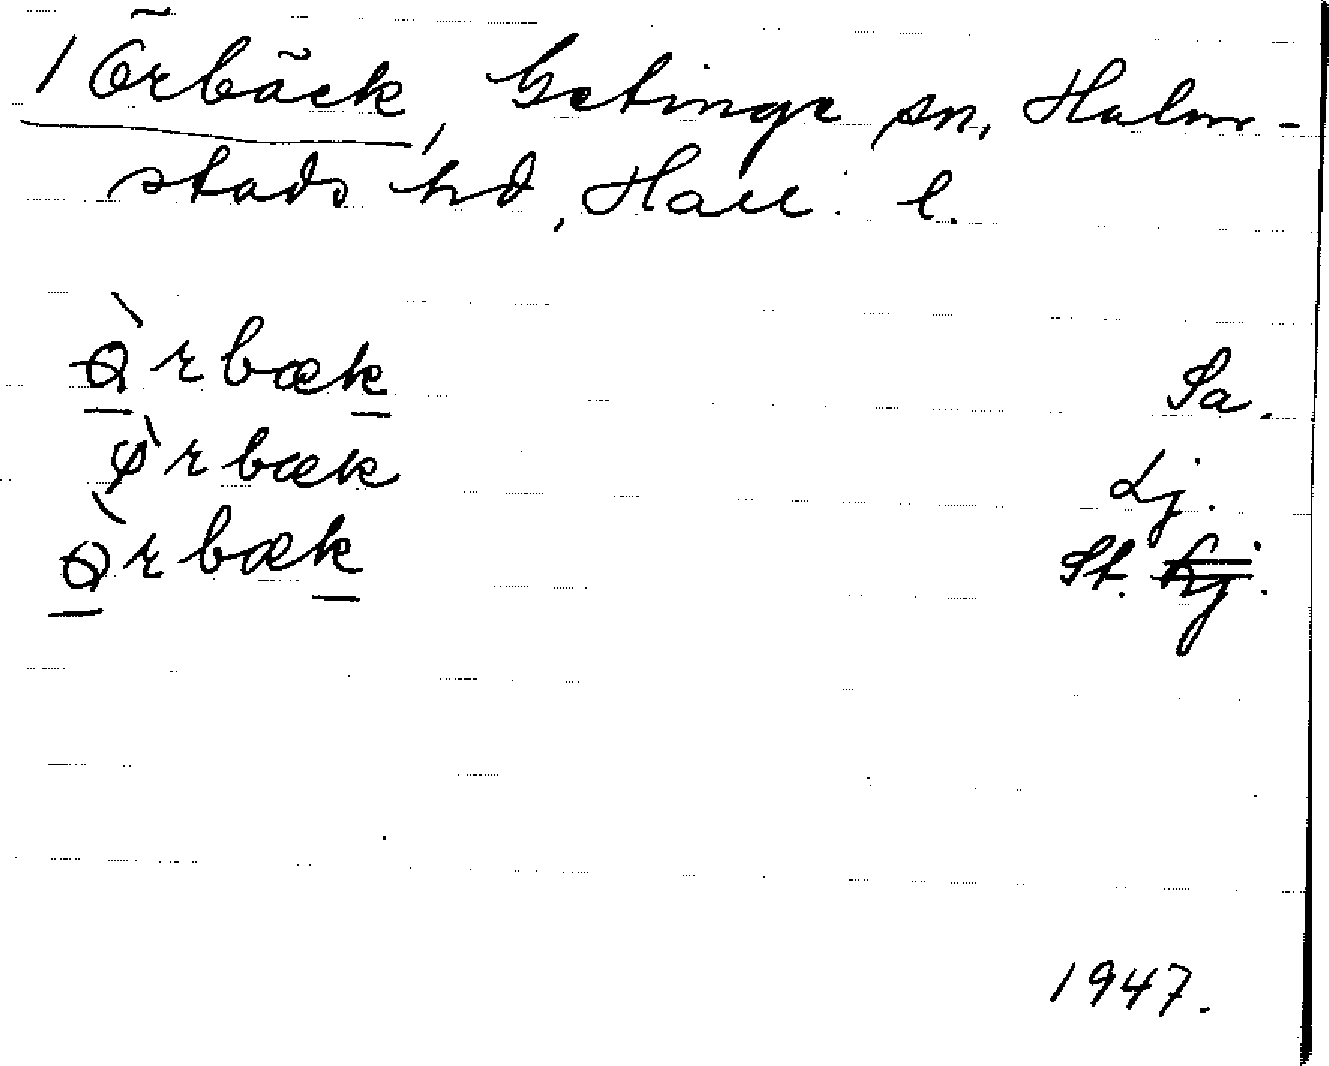 1 Örbäck, Getinge sn, Halm-
stads hd, Hall. l.
Ǿ̀rbæk Sa.
Ø̀rbæk Lj.
Ǿ̀rbæk St. Lj.
1947.